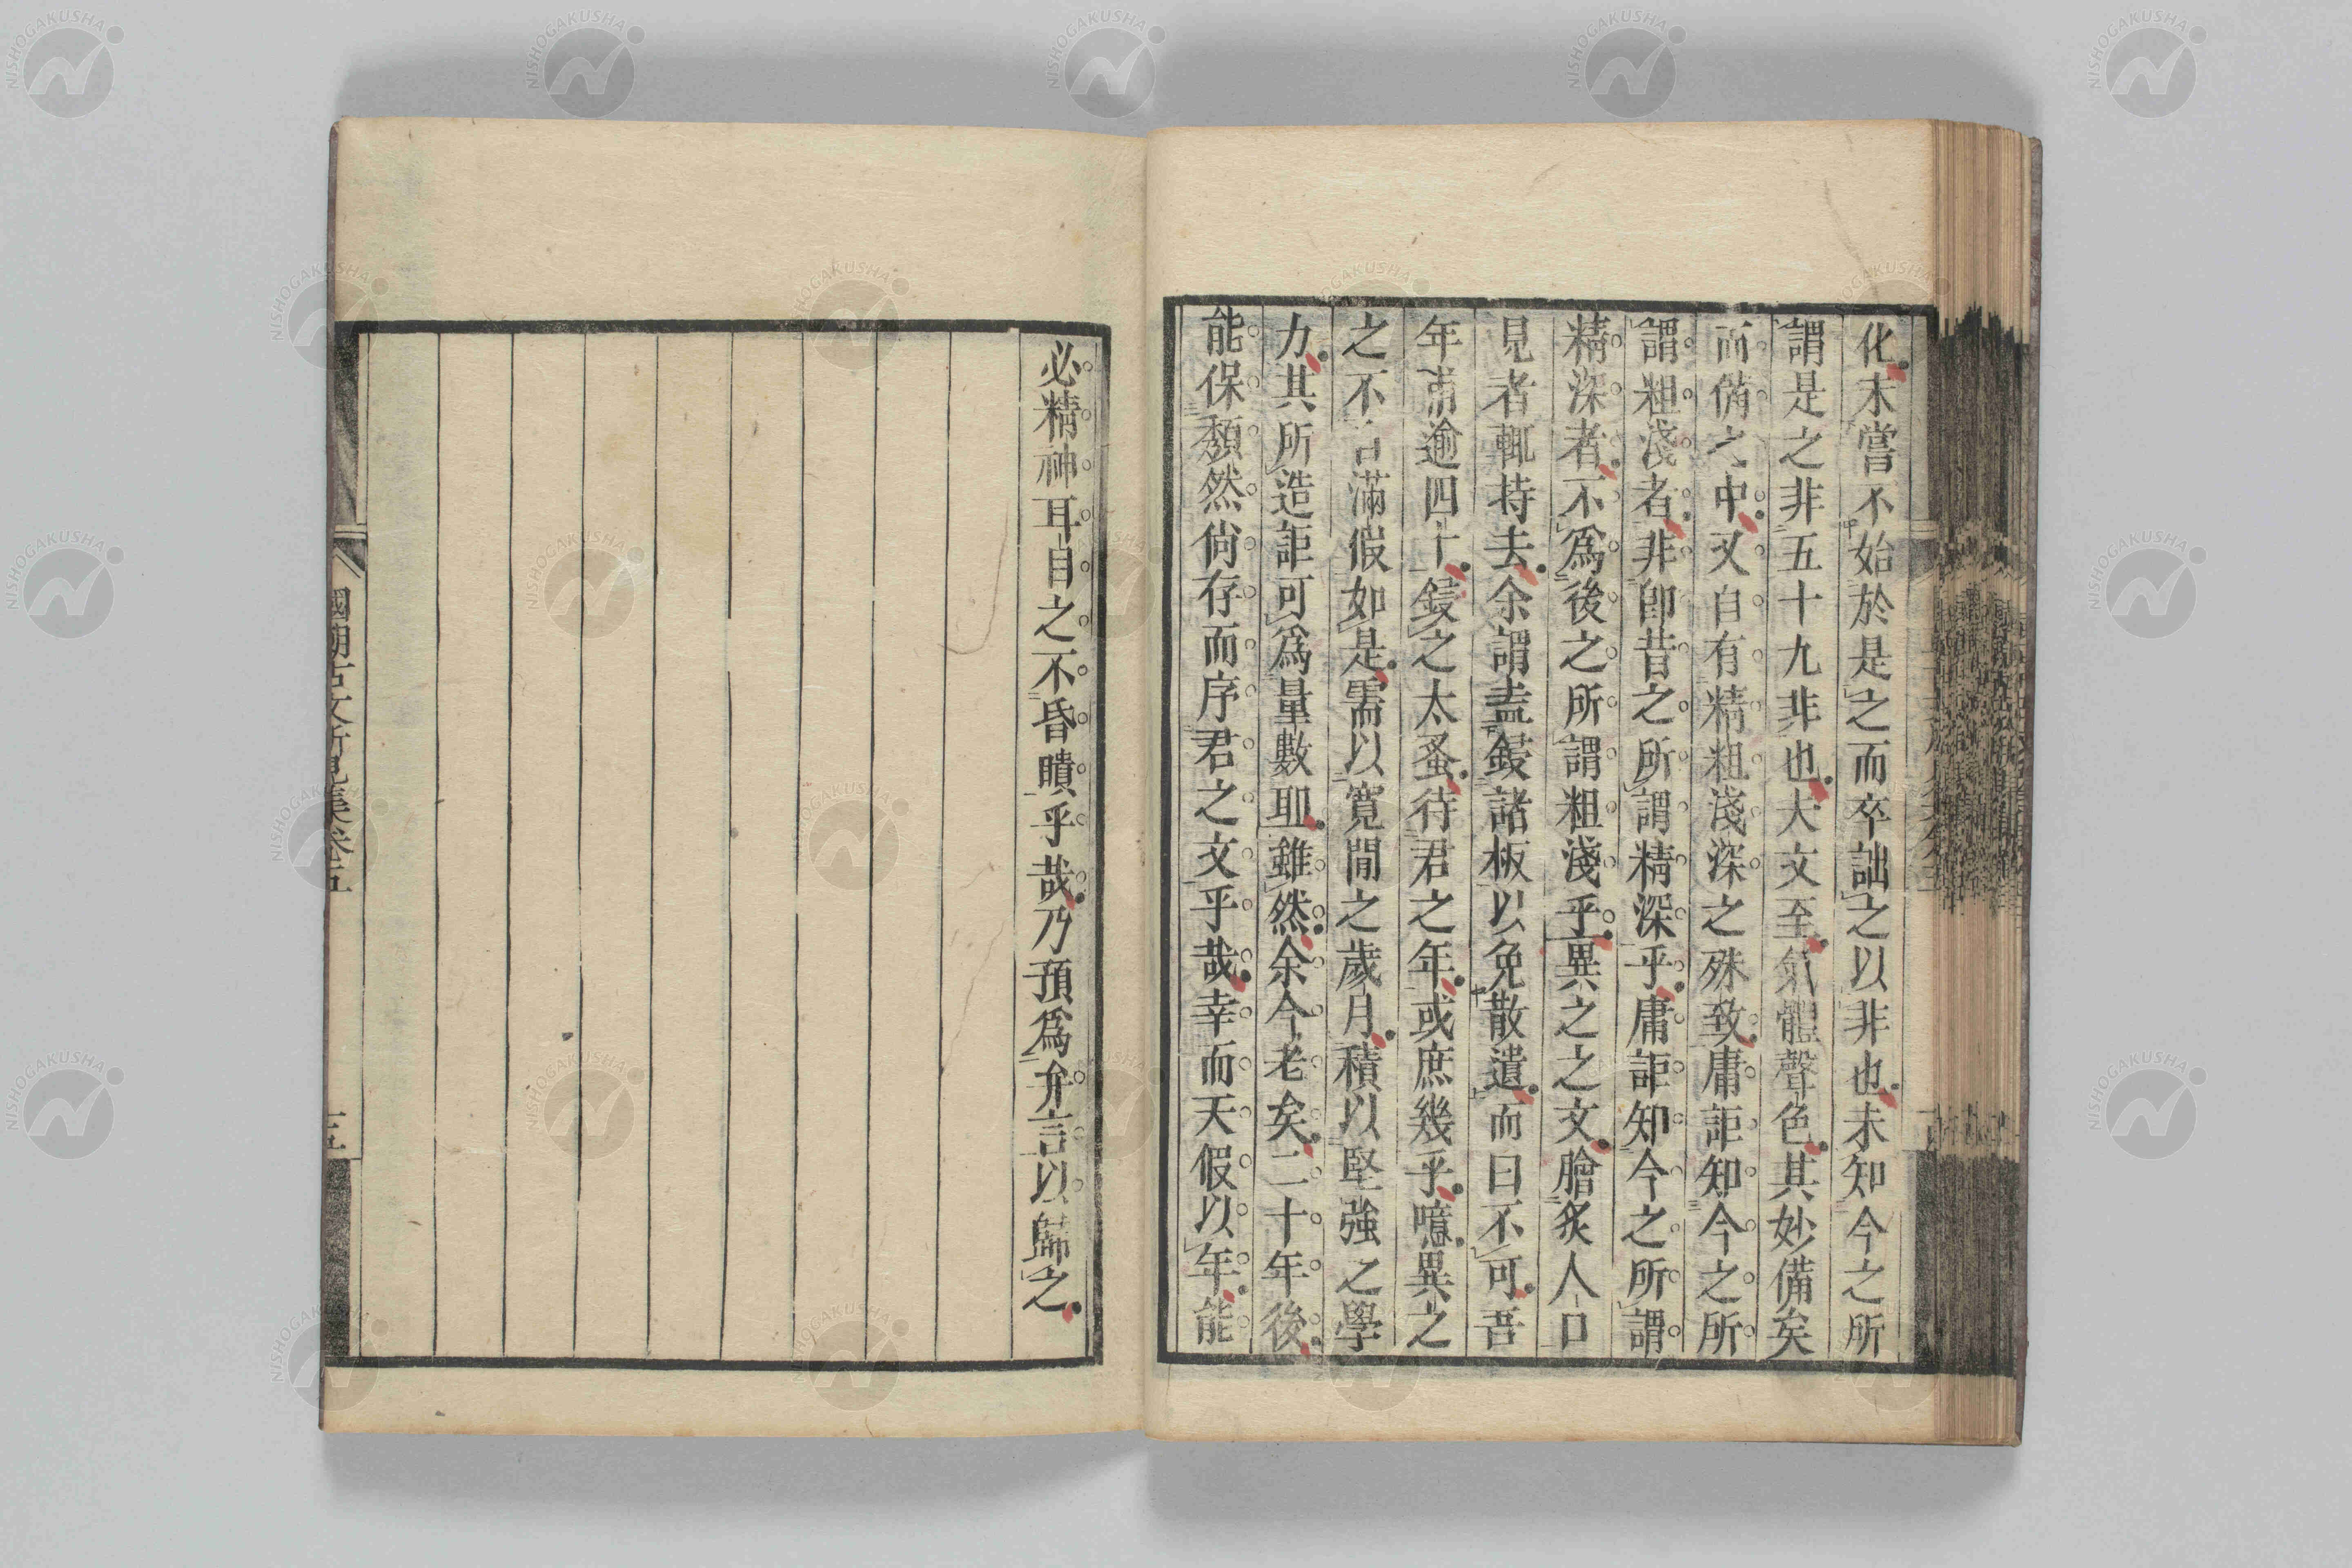 化未嘗不始於是之而卒詘之以非也未知今之所
謂是之非五十九非也大文至氣體聲色其妙備矣
而備之中又自有精粗淺深之殊致庸詎知今之所
謂粗淺者非卽昔之所謂精深乎庸詎知今之所謂
精深者不爲後之所謂粗淺乎異之之文膾炙人口
見者輒持去余謂盍鋟諸板以免散遺而曰不可吾
年甫逾四十鋟之太蚤待君之年或庶幾乎噫異之
之不自滿假如是需以寬閒之歲月積以堅強之學
力其所造詎可爲量數耶雖然余今老矣二十年後
能保頹然尙存而序君之文乎哉幸而天假以年能
必精神耳目之不昏瞶乎哉乃預爲弁言以歸之
國朝古文所見集卷五
五
NISHOGAKUSHA